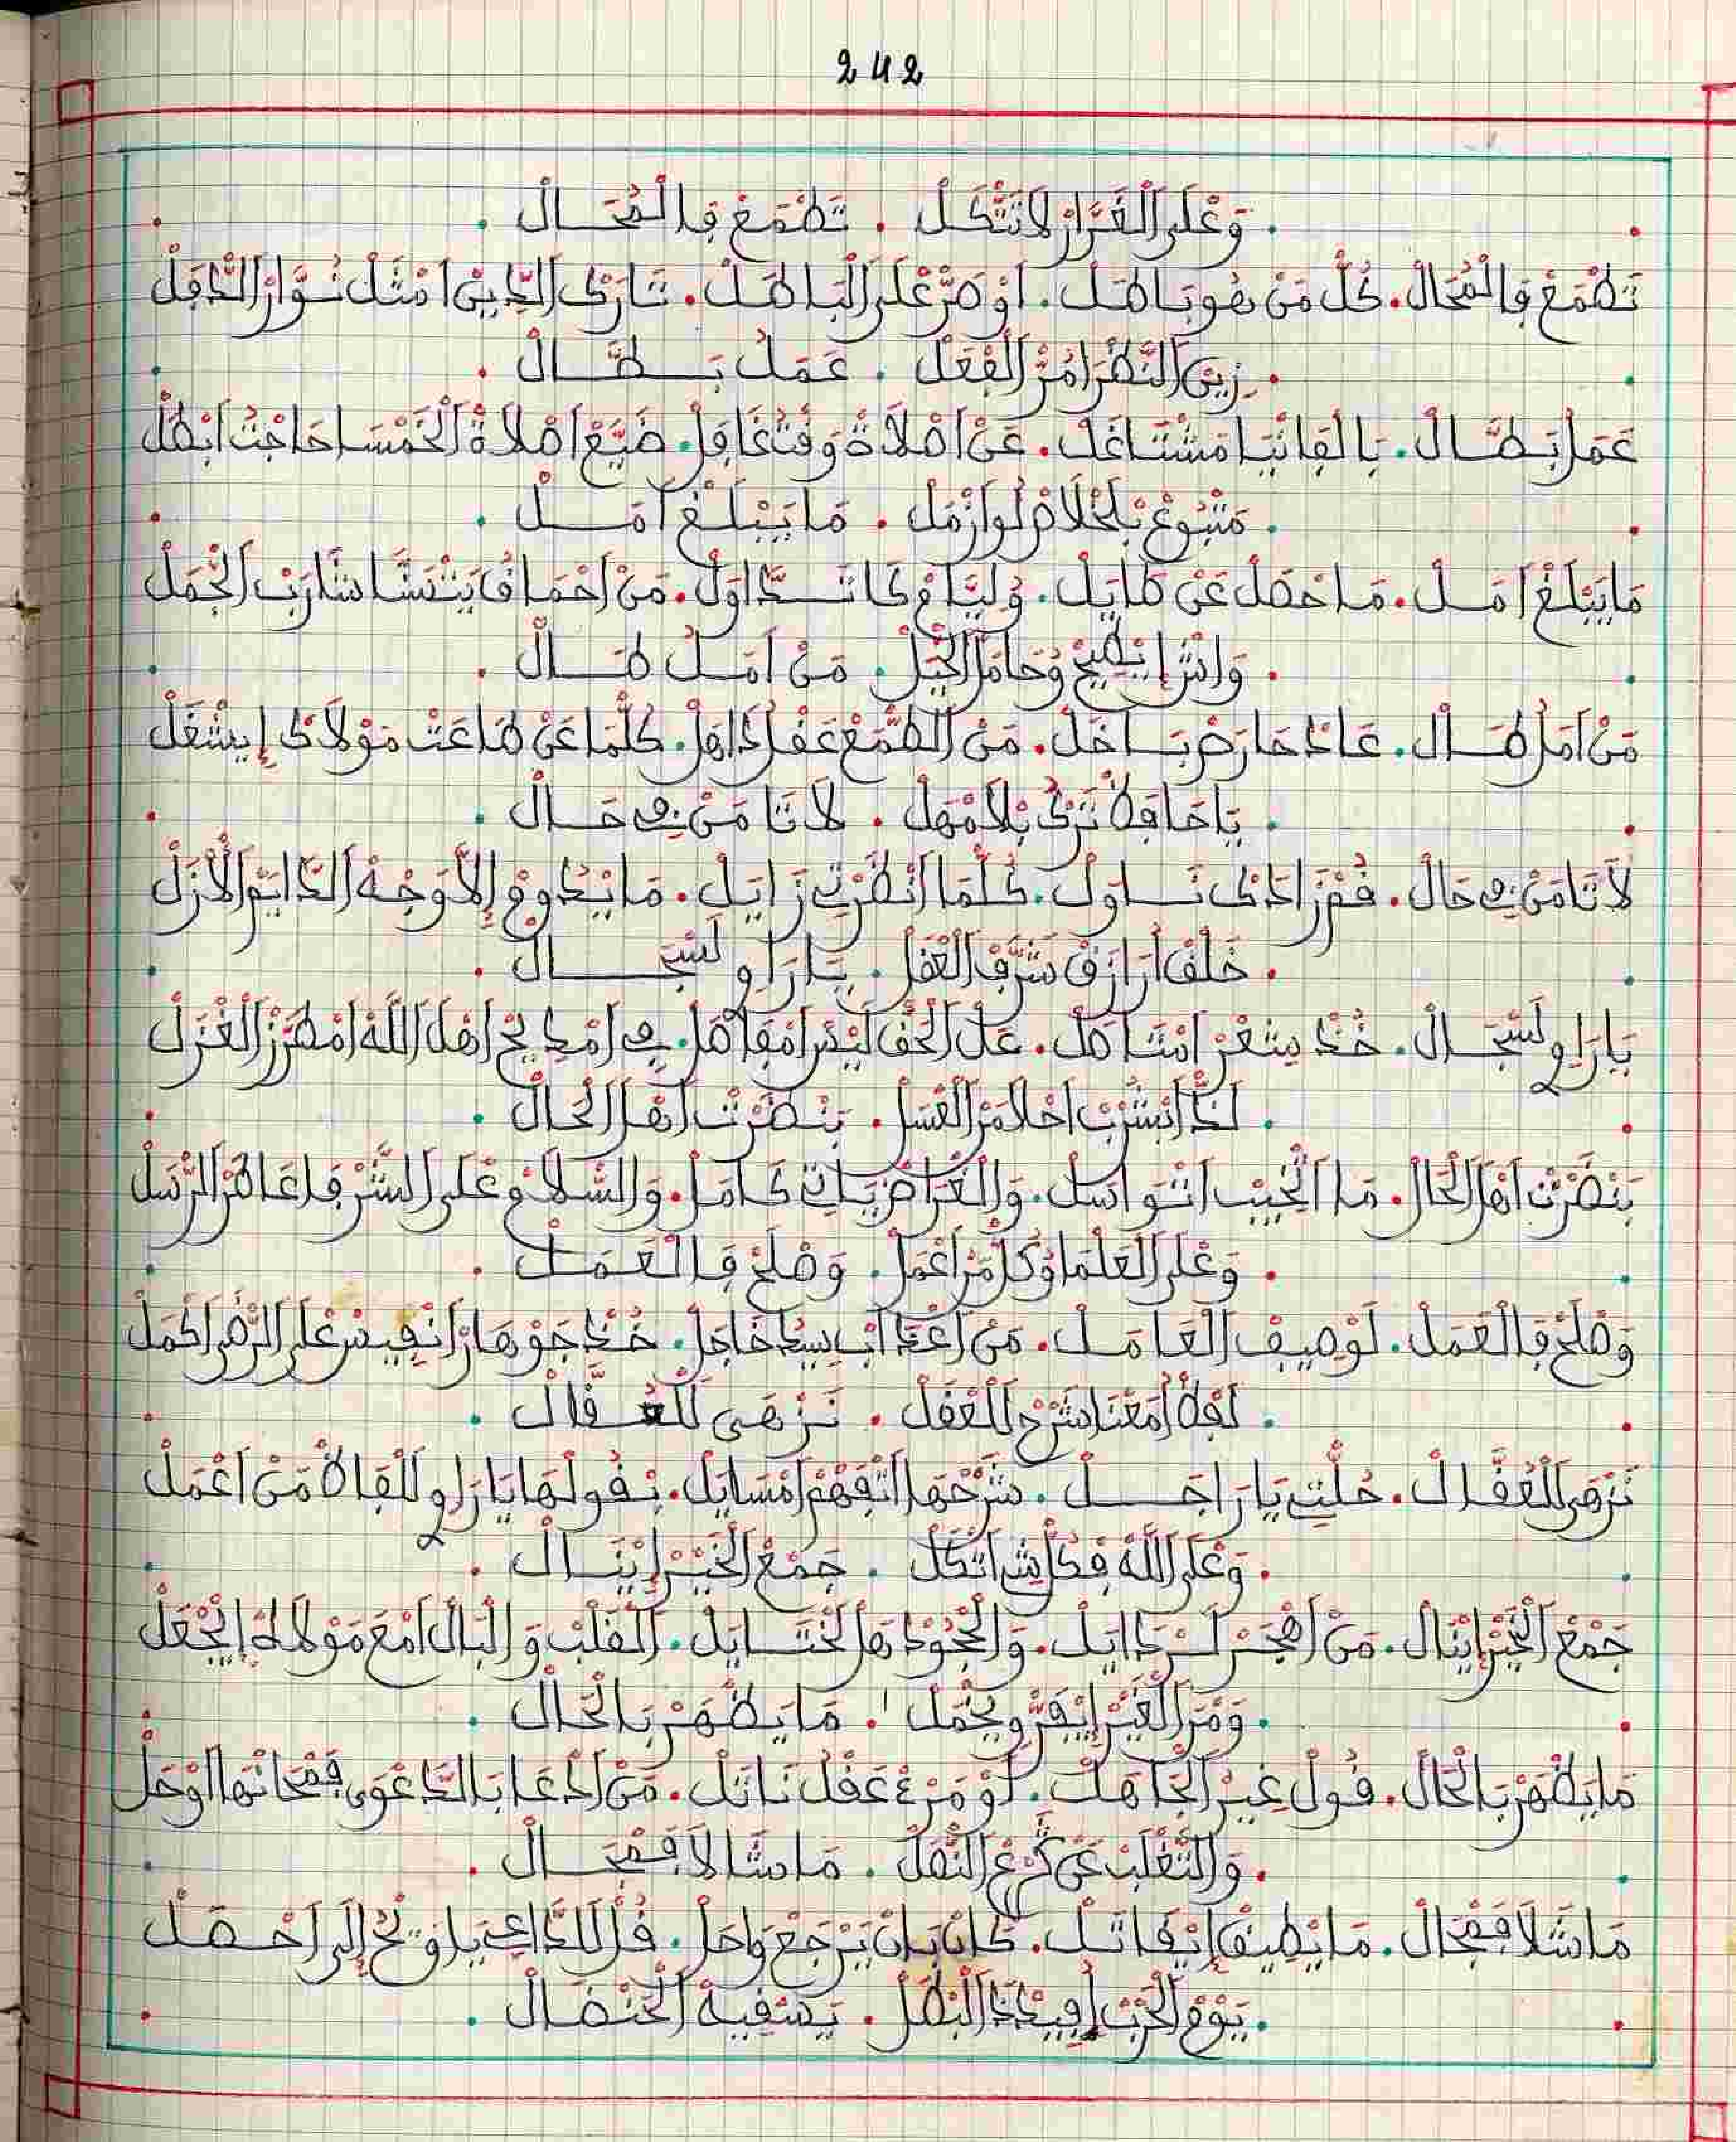 242
وَعْلَى الْغَرَّارْ لَا تَتّْكَلْ . تَطْمَعْ فِالْمُحَالْ .
تَطْمَعْ فِالْمُحَالْ . كُلّْ مَنْ هُو بَاطَلْ . اَوْصَرّْ عْلَى الْبَاطَلْ . تَارَكْ الدِّينْ اَمْثَلْ نُوَّارْ الدَّفِلْ
زِينْ النّْظَرْ اَمُرّْ الْفْعَلْ . عَمَلُ بَطَّالْ .
عَمَلُ بَطَّالْ . بَالْفَانْيَا مَشْتَاغَلْ . عَنْ اَصْلَاةْ وَقْتُ غَافِلْ . ضَيَّعْ اَصْلَاةْ الْخَمْسَا حَاجْتُ اَبْطَلْ
مَتْبُوعْ بْلَخْلَاصْ لَوَازْمَلْ . مَا يَبْلَغْ اَمَلْ .
مَا يَبْلَغْ اَمَلْ . مَا حْصَلْ عَنْ طَايَلْ . وُلِيَّامْ كَا تَدَّاوَلْ . مَنْ اَحْمَاقُ يَتْنَسَّا شَارَبْ الْجْمَلْ
وَاشْ اِيطِيحْ وُحَامَلْ الْجْبَلْ . مَنْ اَمَلُ طَالْ .
مَنْ اَمَلُ طَالْ . عَادْ حَارَصْ بَاخَلْ . مَنْ الطّْمَعْ عَقْلُ ذَاهَلْ . كُلّْمَا عَنْ طَاعَتْ مَوْلَاكْ اِيشْغَلْ
يَا حَافِظْ تَرْكُ بْلَا مْهَلْ . لَا تَامَنْ فِي حَالْ .
لَا تَامَنْ فِي حَالْ . قُمْ زَادَكْ نَاوَلْ . كُلّْمَا اَنْظَرْتِ زَايَلْ . مَا يْدُومْ اِلَّا وَجْهْ الدَّايَمْ الْاَزَلْ
خَلْقْ اَرَازَقْ مَتْرَفْ الْعْقَلْ . يَا رَاوِ لَسْجَالْ .
يَا رَاوِ لَسْجَالْ . خُذْ شِعْرْ اَمْتَاصَلْ . عَلْ الْحَقّْ لَيْسْ اَمْفَاصَلْ . فِي اَمْدِيحْ اَهْلَ اللَّهْ اَمْطَرَّزْ الْغْزَلْ
لَذّْ اَبْشُرْبْ اَحْلَا مَنْ الْعْسَلْ . بَنْضَرْتْ اَهْلْ الْحَالْ .
بَنْضَرْتْ اَهْلْ الْحَالْ . مَا اَنْخِيبْ اَنْتْوَاسَلْ . وَالْغْرَاضْ يَاتِ كَامَلْ . وَالسّْلَامْ عْلَى الشُّرْفَا عَاطَرْ الرّْسَلْ
وَعْلَى الْعَلْمَا وْكُلّْ مَنْ اَعْمَلْ . وَصْلَحْ فَالْعَمَلْ .
وَصْلَحْ فَالْعَمَلْ . لَوْصِيفْ الْعَامَلْ . مَنْ اَعْدَابِ سِيدْ خَاجَلْ . خُذْ جَوْهَارْ اَنْفِيسْ عْلَى الزّْهَرْ اَكْمَلْ
لَفْظْ اَمْعَنَا شَرْحْ لَلْعْقَلْ . نَزْهَى لَلْعُقَّالْ .
نَزْهَى لَلْعُقَّالْ . حُلّْتِ يَا رَاجَلْ . شَرْحْهَا اَتْفَهَّمْ اَمْسَايَلْ . نْقُولْهَا يَا رَاوِ لَلْفَاظْ مَنْ اَعْمَلْ
وَعْلَى اللَّهْ فْكُلّْ شِ اَتْكَلْ . جَمْعْ الْخَيْرْ اِينَالْ .
جَمْعْ الْخَيْرْ اِينَالْ . مَنْ اَهْجَرْ لَرْدَايَلْ . وَالْجُودْ هَلْ لَخْتَايَلْ . الْقَلْبْ وَالْبَالْ اَمْعَ مَوْلَاهْ اِيجْعَلْ
وَمَنْ الْغَيْرْ اِيفَرّْ وِيجْمَلْ . مَا يَظْهَرْ بَالْحَالْ .
مَا يَظْهَرْ بَالْحَالْ . قُولْ غِيرْ الْجَاهَلْ . اَوْ مَنْ عَقْلُ نَاتَلْ . مَنْ اَدْعَا بَالدَّعْوَى فَمْحَانْهَا اَوْحَلْ
وَالتَّغْلَبْ عَنْ كَرْعْ النّْقَلْ . مَا شَالَا فَمْجَالْ .
مَا شَالَا فَمْجَالْ . مَا يْطِيقْ اِيقَاتَلْ . كَانْ بَانْ يَرْجَعْ وَاحَلْ . قُلْ لَلدَّاعِي يَا وَيْحْ اِلَى اَحْصَلْ
يَوْمْ الْحَرْبْ اَفِيدْ ذَا الْبْطَلْ . يَسْقِيهْ الْحَنْضَالْ .